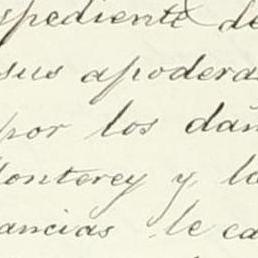 spediente de
sus apodera
por los dañ
onterey y la
ancias le ca